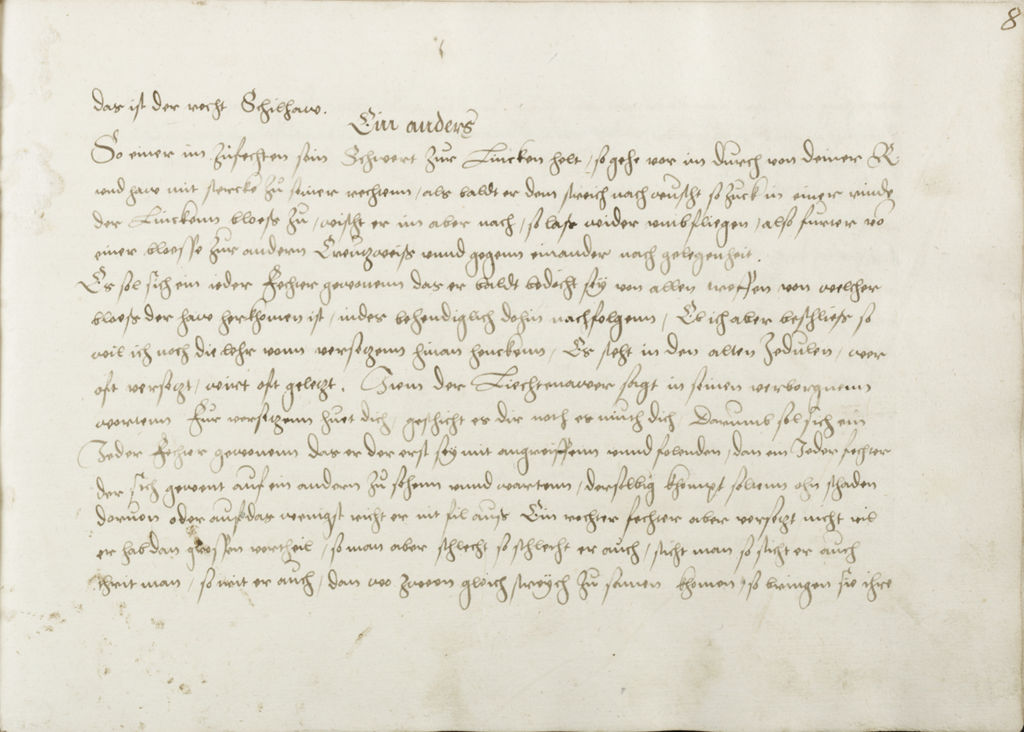 8
das ist der recht Schilhaw.
Ein anders
So einer im zufechten sein Schwert zur Lincken helt, so gehe vor im durch von deiner R
unnd haw mit stercke zu seiner rechtenn, als baldt er dem streich nach wuscht so zuck in einer rindē
der Linckenn bloess zu, wischt er im aber nach, so lass wider umbfliegen, also furter vō
einer bloesse zur andern Creutzweiss unnd gegenn einander nach gelegenheit.
Es sol sich ein ieder Fechter gewonenn das er baldt bedacht sey von allen treffen von welcher
bloess der haw herkhomen ist, indes behendiglich dohin nachfolgenn, Eb ich aber beschliess so
wil ich noch die lehr vonn versetzenn hinan henckenn, Es steht in den alten Zedulen, wer
oft versetzt, wirt oft geletzt. Item der Liechtenawer sagt in seinen verborgnenn
wortenn Fur versetzenn huet dich, geschicht es dir noth es muth dich, Darumb sol sich ein
Jeder Fechter gewonenn das er der erst sey mit angreiffenn unnd folenden, dan ein Jeder fechter
der sich gewent auf ein andern zu sehenn unnd wartenn, derselbig khompt seltenn ohn schaden
dorvon oder aufs das wenigst richt er nit fil auss Ein rechter fechter aber versetzt nicht vil
er hab dan grossen vortheil, so man aber schlecht so schlecht er auch, sticht man so sticht er auch
thrit man, so trit er auch, dan wo zween gleich streych zu samen khomen, so bringen sie ihre